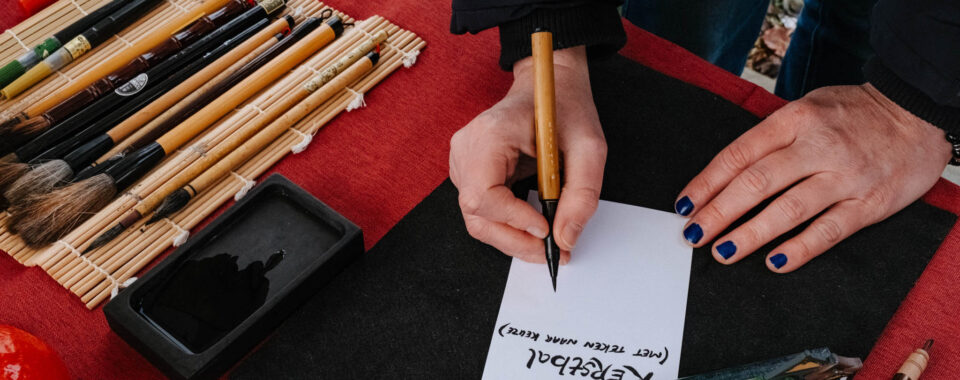 KERStbal
(MET TEKEN NAAR KEUZE)